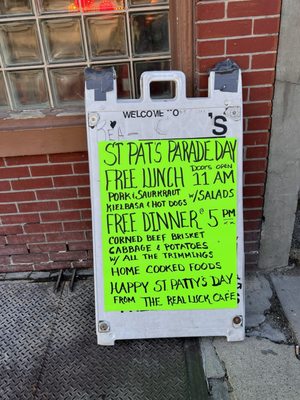 WELCOME TO
'S
ST PATS PARADE DAY
FREE LUNCH DOORS OPEN 11 AM
PORK & SAURKRAUT W/ SALADS
KIELBASA & HOT DOGS
FREE DINNER @ 5 PM
CORNED BEEF BRISKET
CABBAGE & POTATOES
W/ ALL THE TRIMMINGS
HOME COOKED FOODS
HAPPY ST PATTY'S DAY
FROM THE REAL LUCK CAFE